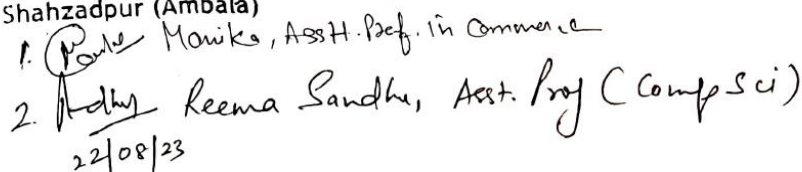 Shahzadpur (Ambala)
1. Monika, Asstt. Prof. in Commerce
2. Reema Sandhu, Asst. Prof (Comp Sci)
22/08/23